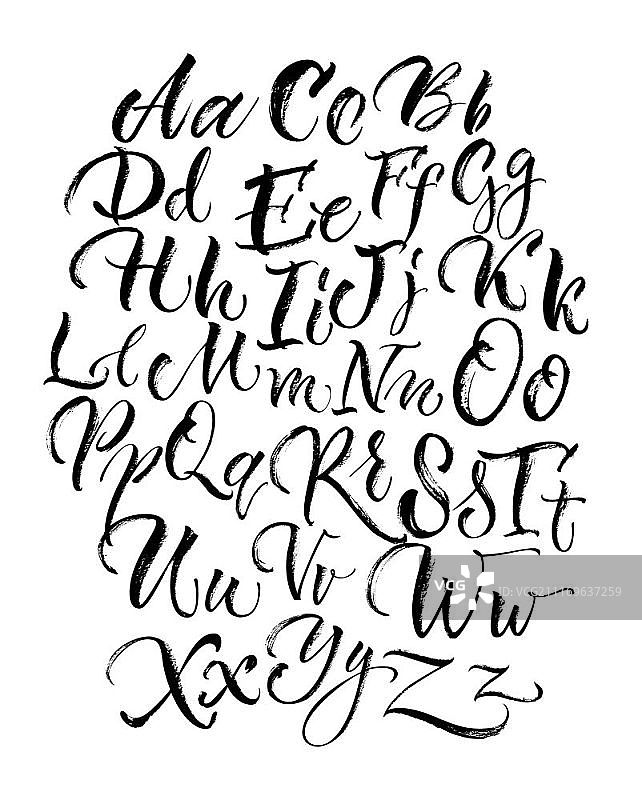 Aa Cc Bb
Dd Ee Ff Gg
Hh Ii Jj Kk
Ll Mm Nn Oo
Pp Qq Rr Ss Tt
Uu Vv Ww
VCG ID:VCG211169637259
Xx Yy Zz